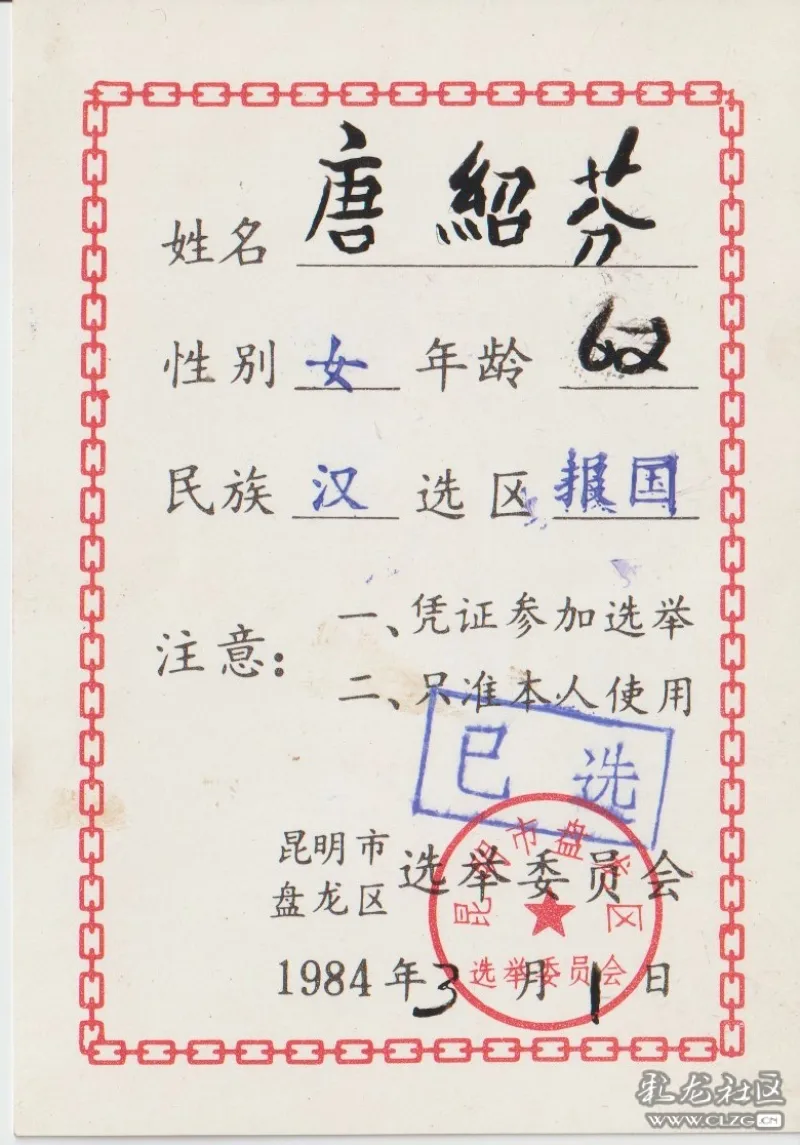 姓名 唐紹芬
性别 女 年龄 62
民族 汉 选区 报国
注意：
一、凭证参加选举
二、只准本人使用
已选
昆明市
盘龙区
选举委员会
昆明市盘龙区
选举委员会
1984年3月1日
彩龙社区
WWW.CLZG.CN